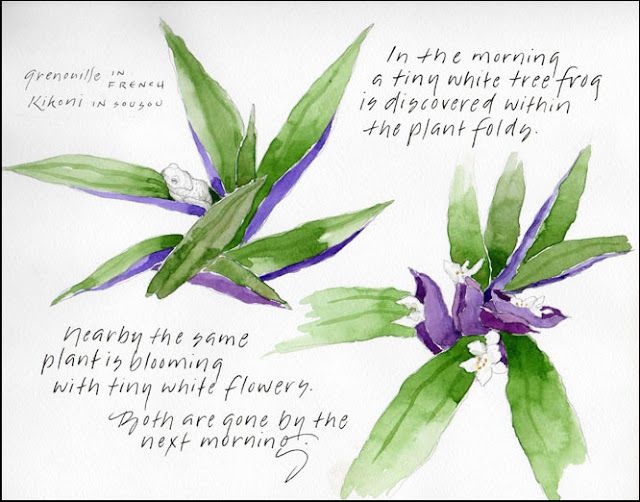 grenouille IN FRENCH
Kikoni IN SOUSOU
In the morning
a tiny white tree frog
is discovered within
the plant folds.
Nearby the same
plant is blooming
with tiny white flowers.
Both are gone by the
next morning.